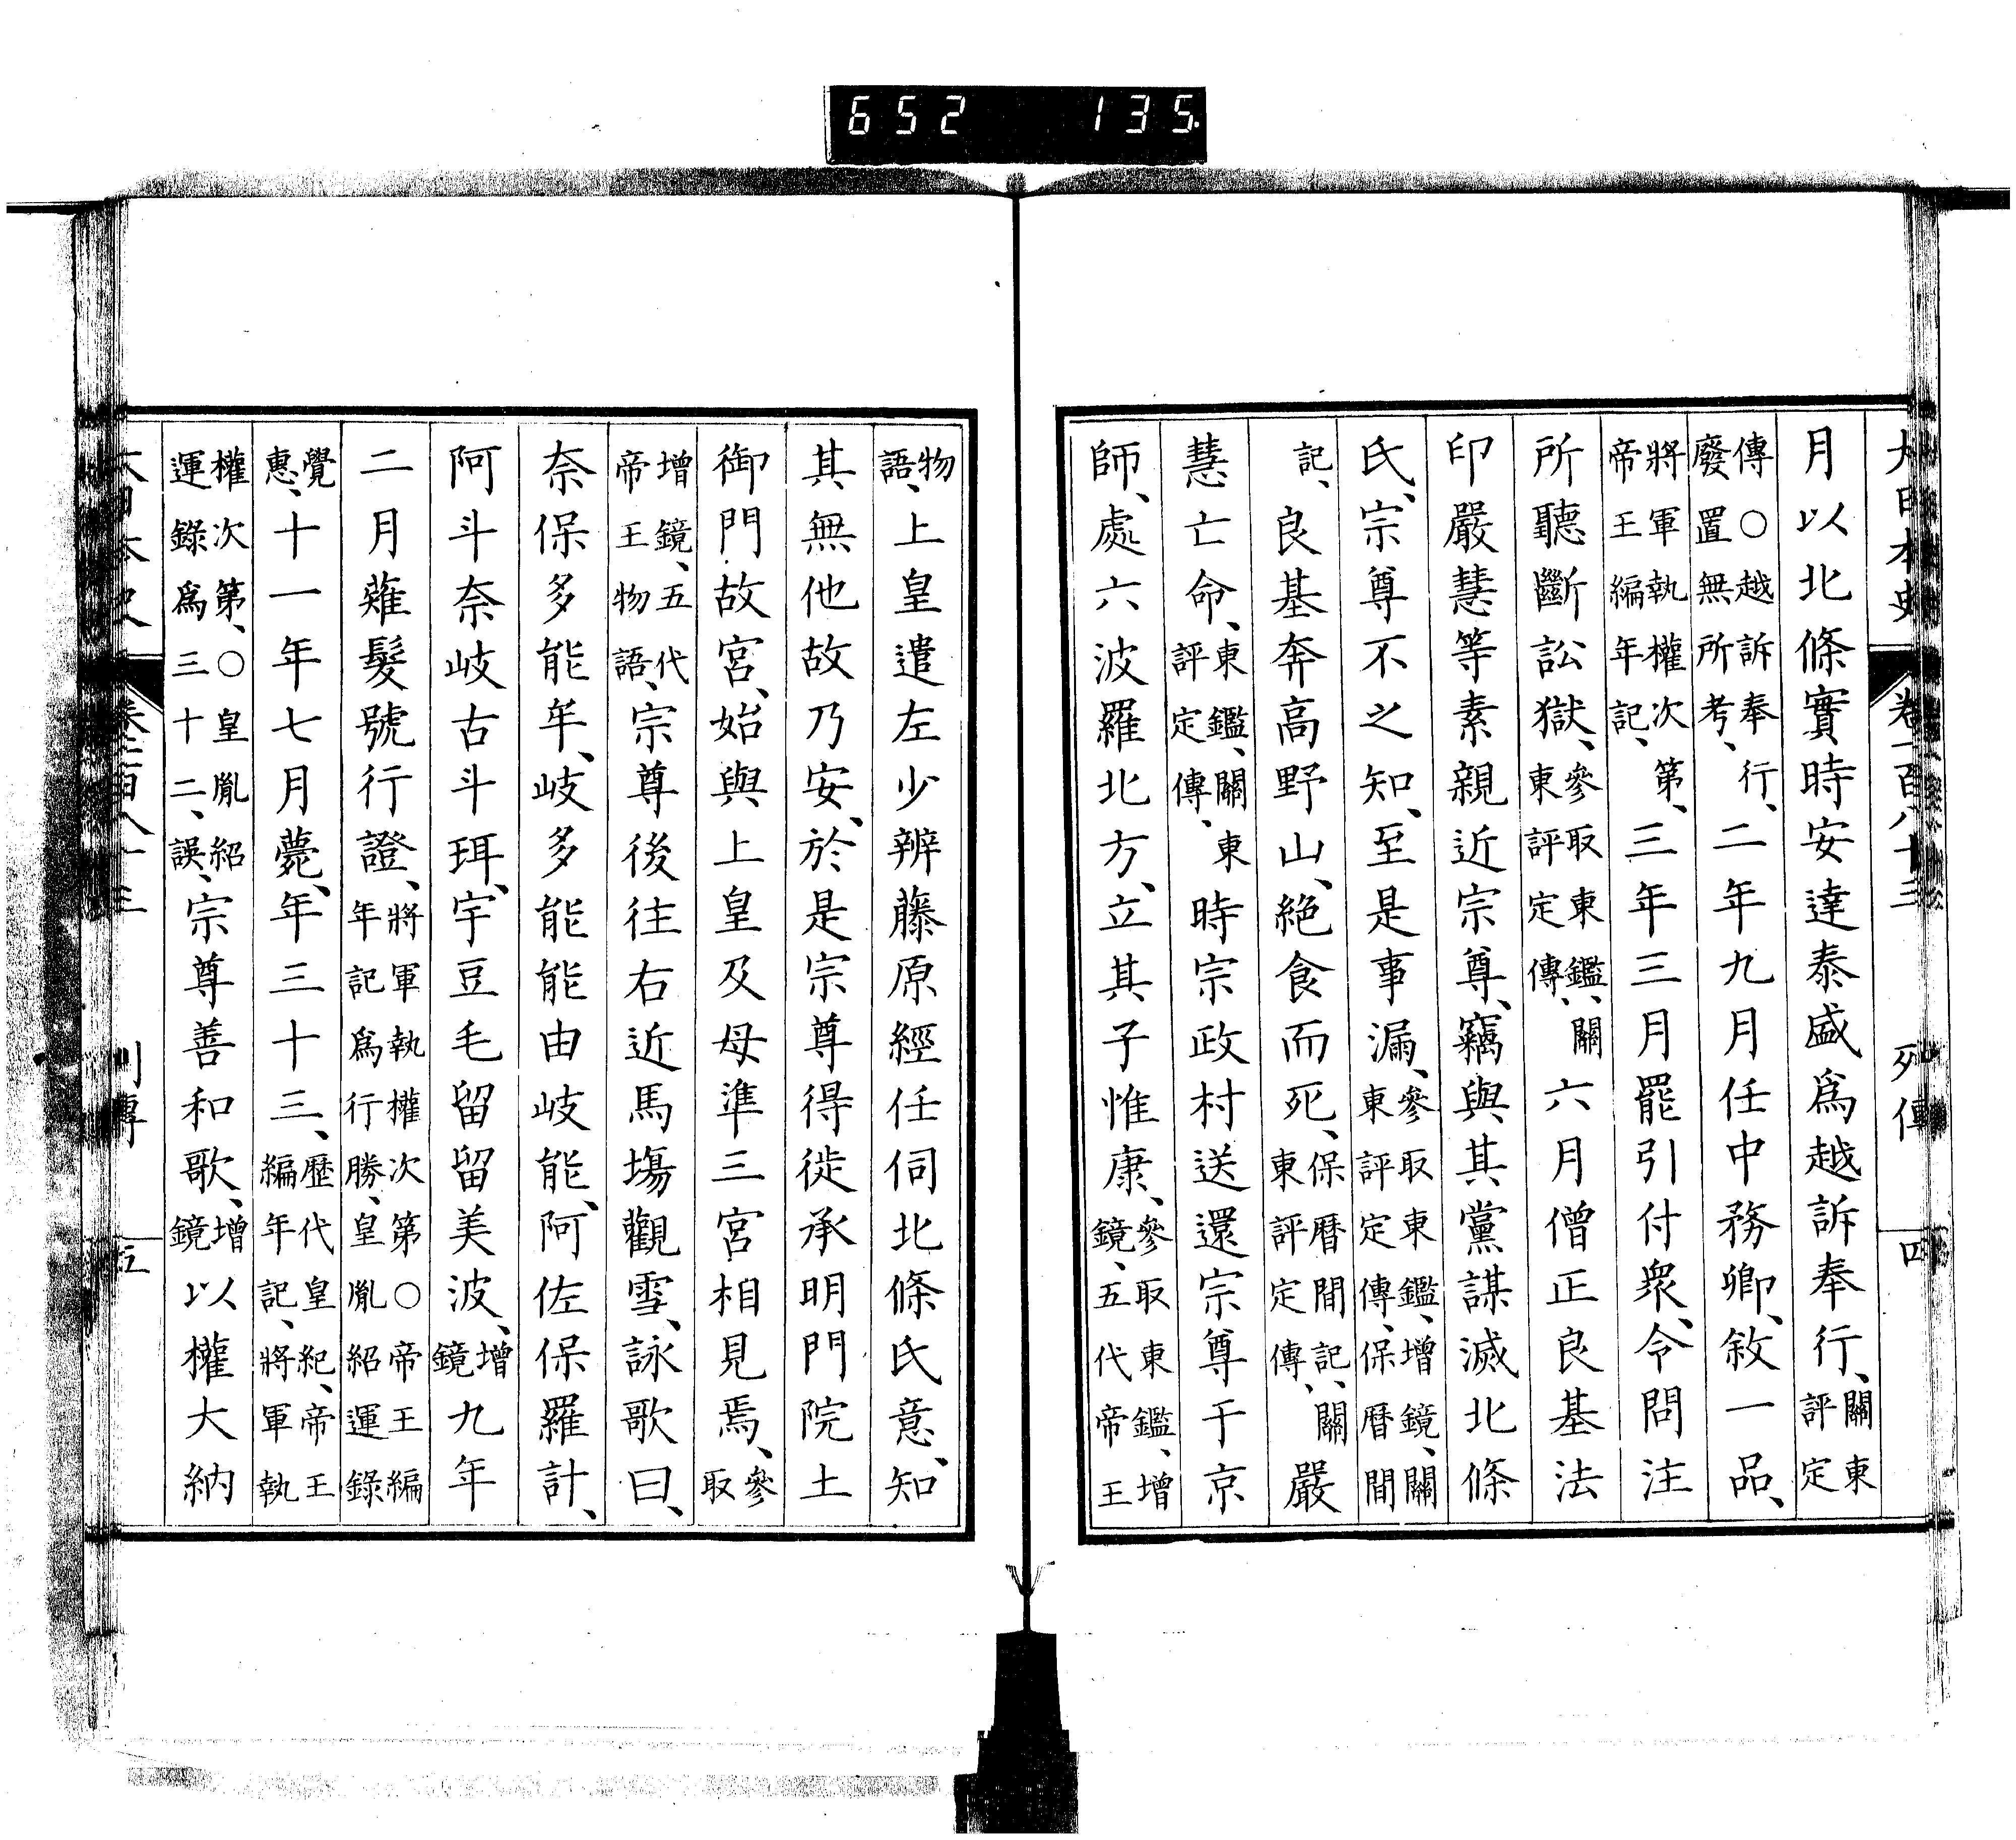 652 135
大日本史 卷一百八十三 列傳 四
月以北條實時安達泰盛爲越訴奉行、關東評定
傳○越訴奉行、廢置無所考、二年九月任中務卿、敘一品、
將軍執權次第、帝王編年記、三年三月罷引付衆、令問注
所聽斷訟獄、參取東鑑、關東評定傳、六月僧正良基法
印嚴慧等素親近宗尊、竊與其黨謀滅北條
氏、宗尊不之知、至是事漏、參取東鑑、增鏡、關東評定傳、保曆間
記、良基奔高野山、絶食而死、保曆間記、關東評定傳、嚴
慧亡命、東鑑、關東評定傳、時宗政村送還宗尊于京
師、處六波羅北方、立其子惟康、參取東鑑、增鏡、五代帝王
物語、上皇遣左少辨藤原經任伺北條氏意、知
其無他故乃安、於是宗尊得徙承明門院土
御門故宮、始與上皇及母準三宮相見焉、參取
增鏡、五代帝王物語、宗尊後往右近馬場觀雪、詠歌曰、
奈保多能年、岐多能能由岐能、阿佐保羅計、
阿斗奈岐古斗珥、宇豆毛留留美波、增鏡九年
二月薙髮號行證、將軍執權次第○帝王編年記爲行勝、皇胤紹運錄
覺惠、十一年七月薨、年三十三、歷代皇紀、帝王編年記、將軍執
權次第、○皇胤紹運錄爲三十二、誤、宗尊善和歌、增鏡以權大納
大日本史 卷一百八十三 列傳 五